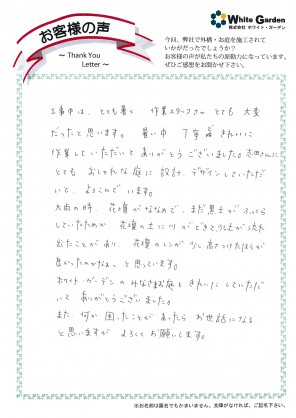 お客様の声
~ Thank You
Letter ~
White Garden
株式会社 ホワイト・ガーデン
今回、弊社で外構・お庭を施工されて
いかがだったでしょうか?
お客様の声が私たちの原動力になっています。
ぜひご感想をお聞かせ下さい。
工事中は、とても暑く 作業スタッフさん とても 大変
だったと思います。 暑い中 丁寧 きれいに
作業していただいて ありがとうございました。 志田さんに
とても おしゃれな庭に 設計、デザインしていただ
いて、よろこんでいます。
大雨の時、花壇がななめで、まだ黒土がふっくら
していたためか 花壇の土に川ができて少し土が流れ
出たことがあり、花壇のレンガが少し高さつけたほうが
良かったのかなぁ。と思っています。
ホワイト・ガーデンのみなさまお庭ときれいにしていただ
いて ありがとうございました。
また、何か困ったことがあったら お世話になる
と思いますが よろしくお願いします。
※お名前は匿名でもかまいません。支障がなければ、ご記名下さい。